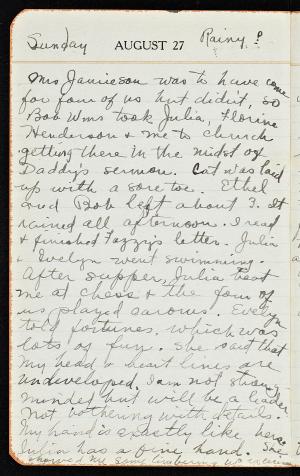 Sunday AUGUST 27 Rainy
Mrs Jamieson was to have come
for four of us but didn't, so
Bob Wms took Julia, Florine
Henderson & me to church
getting there in the midst of
Daddy's sermon. Cat was laid
up with a sore toe. Ethel
and Bob left about 3. It
rained all afternoon. I read
& finished Fazzy's letter. Julia
& Evelyn went swimming.
After supper, Julia beat
me at chess & the four of
us played caroms. Evelyn
told fortunes, which was
lots of fun. She said that
my head & heart lines are
undeveloped. I am not strong
minded but will be a leader
not bothering with details.
My hand is exactly like hers.
Julia has a fine hand. She
showed me